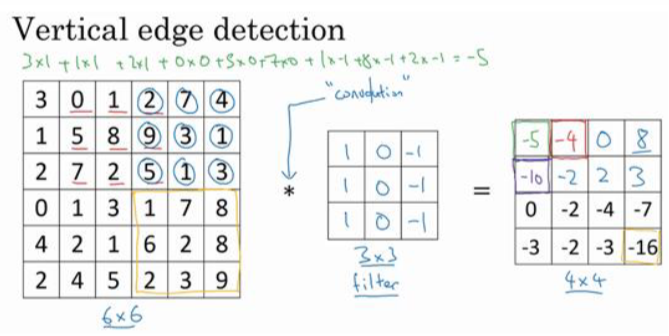 Vertical edge detection
3×1 + 1×1 + 2×1 + 0×0 + 5×0 + 7×0 + 1×-1 + 8×-1 + 2×-1 = -5
"convolution"
3 0 1 2 7 4
1 5 8 9 3 1
2 7 2 5 1 3
0 1 3 1 7 8
4 2 1 6 2 8
2 4 5 2 3 9
6×6
*
1 0 -1
1 0 -1
1 0 -1
3×3
filter
=
-5 -4 0 8
-10 -2 2 3
0 -2 -4 -7
-3 -2 -3 -16
4×4